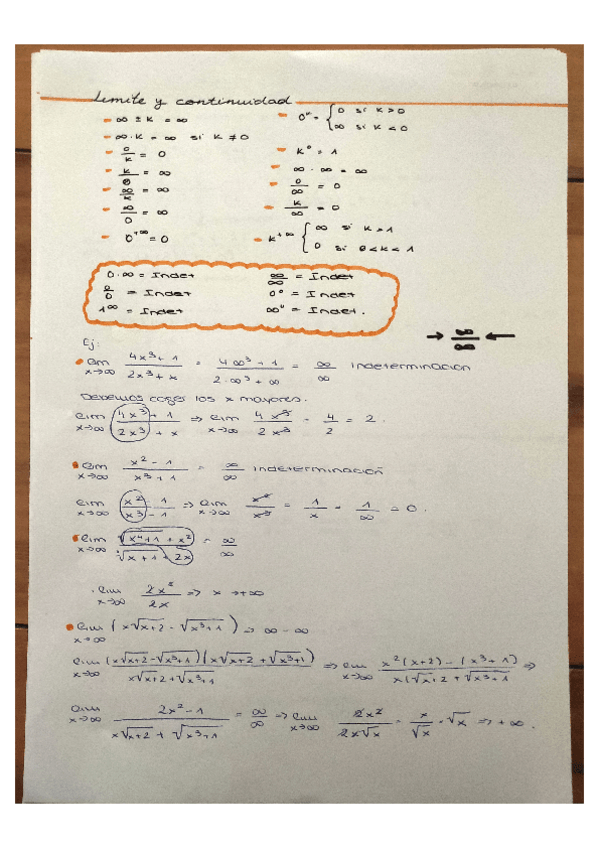 Limite y continuidad
- ∞ ± K = ∞
- 0ᵏ = { 0 si K > 0
∞ si K < 0
- ∞ · K = ∞ si K ≠ 0
- 0/K = 0
- K⁰ = 1
- K/0 = ∞
- ∞ · ∞ = ∞
- ∞/K = ∞
- 0/∞ = 0
- ∞/0 = ∞
- K/∞ = 0
- 0⁺∞ = 0
- K⁺∞ { ∞ si K > 1
0 si 0 < K < 1
0·∞ = Indet
∞/∞ = Indet
0/0 = Indet
0⁰ = Indet
1^∞ = Indet
∞⁰ = Indet.
→ ∞/∞ ←
Ej:
lim x→∞ (4x³+1)/(2x³+x) = (4∞³+1)/(2·∞³+∞) = ∞/∞ indeterminación
Debemos coger los x mayores.
lim x→∞ (4x³+1)/(2x³+x) ⇒ lim x→∞ 4x³/2x³ = 4/2 = 2
lim x→∞ (x²-1)/(x³+1) = ∞/∞ indeterminación
lim x→∞ (x²-1)/(x³-1) ⇒ lim x→∞ x²/x³ = 1/x = 1/∞ = 0.
lim x→∞ (√(x⁴+1) + x²)/(√(x+1) + 2x) = ∞/∞
· lim x→∞ 2x²/2x ⇒ x → +∞
lim x→∞ (x√x+2 - √x³+1) ⇒ ∞ - ∞
lim x→∞ (x√x+2 - √x³+1)(x√x+2 + √x³+1)/(x√x+2 + √x³+1) ⇒ lim x→∞ (x²(x+2) - (x³+1))/(x(√x+2 + √x³+1) ⇒
lim x→∞ (2x²-1)/(x√x+2 + √x³+1) = ∞/∞ ⇒ lim x→∞ 2x²/2x√x = x/√x = √x ⇒ +∞.